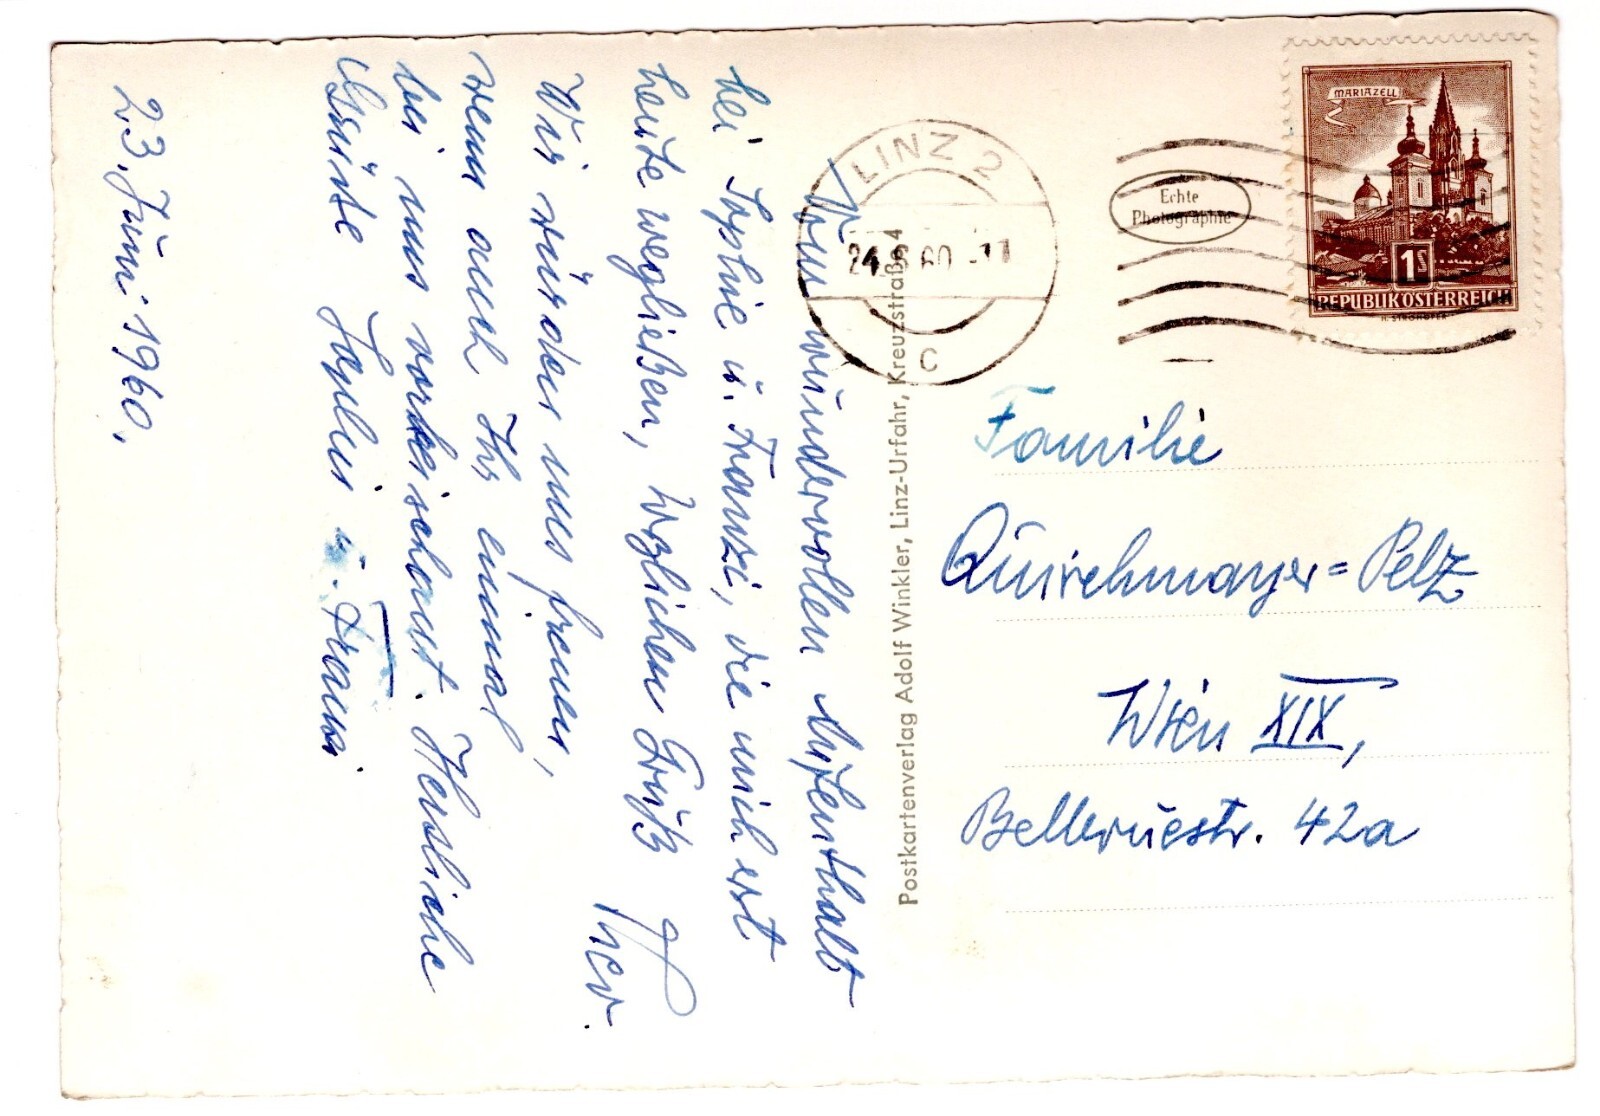 Vom wundervollen Aufenthalt
bei Sophie u. Franzi, die mich erst
heute wegließen, herzlichen Gruß
Theo.
Wir würden uns freuen,
wenn auch Ihr einmal
bei uns vorbeischaut. Herzliche
Grüße Sophie u. Franzi
23. Juni 1960.
Postkartenverlag Adolf Winkler, Linz-Urfahr, Kreuzstraße 4
LINZ 2
24. 60 -11
c
Echte
Photographie
MARIAZELL
1S
REPUBLIK ÖSTERREICH
Familie
Quirchmayer=Pelz
Wien XIX,
Bellevuestr. 42a